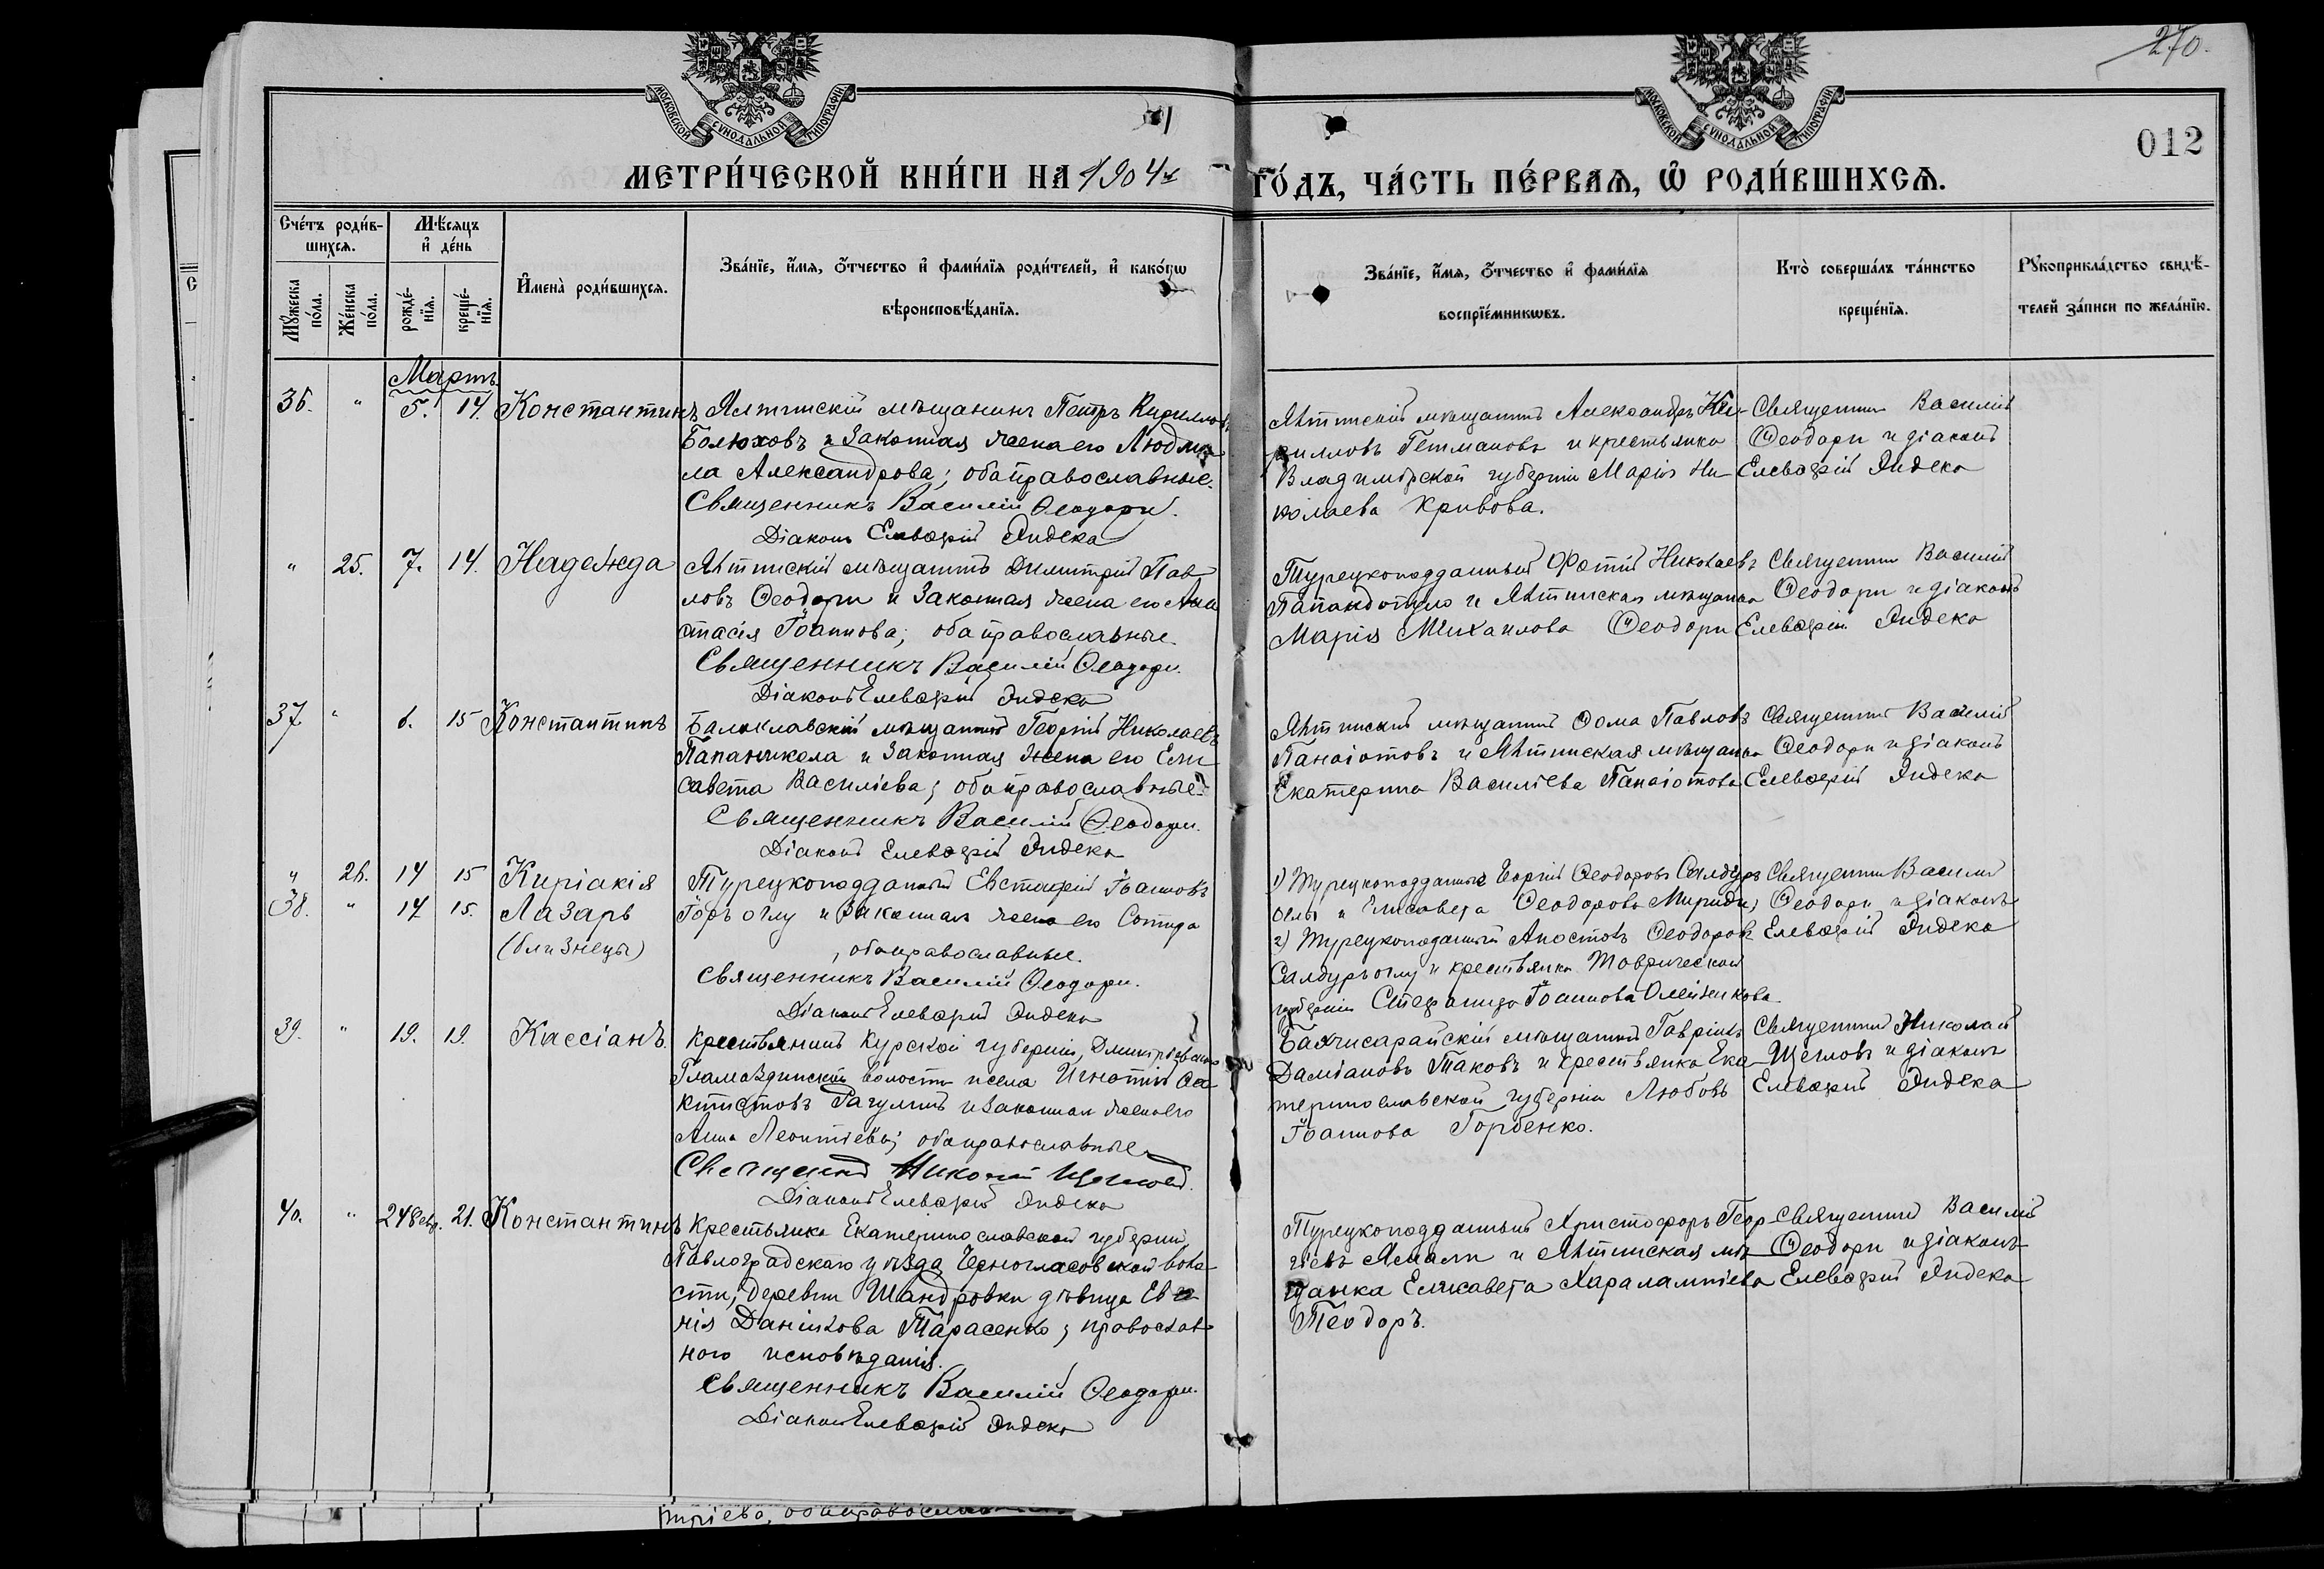 270.
012
МОСКОВСКОЙ СѴНОДАЛЬНОЙ ТИПОГРАФІИ
МОСКОВСКОЙ СѴНОДАЛЬНОЙ ТИПОГРАФІИ
МЕТРИ́ЧЕСКОЙ КНИ́ГИ НА 1904 ГО́ДЪ, ЧА́СТЬ ПЕ́РВАѦ, Ѡ҆ РОДИ́ВШИХСѦ.
Сче́тъ роди́в-
шихсѧ.
Мꙋ́жеска по́ла.
Же́нска по́ла.
Мѣ́сѧцъ и҆ де́нь
рожде́-нїѧ.
креще́-нїѧ.
И҆мена̀ роди́вшихсѧ.
Зва́нїе, и҆́мѧ, ѻ҆́тчество и҆ фами́лїѧ роди́телей, и҆ како́гѡ
вѣроисповѣ́данїѧ.
Зва́нїе, и҆́мѧ, ѻ҆́тчество и҆ фами́лїѧ
воспрїе́мникѡвъ.
Кто̀ соверша́лъ та́инство
креще́нїѧ.
Рꙋкоприкла́дство свидѣ́-
телей за́писи по жела́нїю.
Мартъ
36. " 5. 14. Константинъ
Ялтинскій мѣщанинъ Петръ Кириловъ
Болюховъ и законная жена его Людми
ла Александрова; оба православные.
Священникъ Василій Ѳеодори.
Діаконъ Елевѳерій Индека
Ялтинскій мѣщанинъ Александръ Ки-
рилловъ Гетмановъ и крестьянка
Владимірской губерніи Марія Ни-
колаева Кривова.
Священникъ Василій
Ѳеодори и діаконъ
Елевѳерій Индека
" 25. 7. 14. Надежда
Ялтинскій мѣщанинъ Димитрій Пав-
ловъ Ѳеодори и законная жена его Ана
стасія Іоаннова; оба православные.
Священникъ Василій Ѳеодори.
Діаконъ Елевѳерій Индека
Турецкоподданный Фотій Николаевъ
и Ялтинская мѣщанка
Марія Михаилова Ѳеодори
Священникъ Василій
Ѳеодори и діаконъ
Елевѳерій Индека
37 " 6. 15 Константинъ
Балаклавскій мѣщанинъ Георгій Николаевъ
Папаникола и законная жена его Ели
савета Василіева; оба православные.
Священникъ Василій Ѳеодори.
Діаконъ Елевѳерій Индека
Ялтинскій мѣщанинъ Ѳома Павловъ
Панаіотовъ и Ялтинская мѣщанка
Екатерина Василіева Панаіотова
Священникъ Василій
Ѳеодори и діаконъ
Елевѳерій Индека
" 26. 14 15 Киріакія
38. " 14 15. Лазарь
(близнецы)
Турецкоподданный Евстаѳій Іоанновъ
оглу и законная жена его Сотира
, оба православные.
Священникъ Василій Ѳеодори.
Діаконъ Елевѳерій Индека
1) Турецкоподданные Георгій Ѳеодоровъ Салдуръ
оглы и Елисавета Ѳеодорова
2) Турецкоподданный Апостолъ Ѳеодоровъ
Салдуръ оглу и крестьянка Таврической
губерніи Стефанида Іоаннова Олейникова.
Священникъ Василій
Ѳеодори и діаконъ
Елевѳерій Индека
39. " 19. 19. Кассіанъ.
Крестьянинъ Курской губерніи, Дмитріевскаго
волости и села Игнатій Ѳео
ктистовъ и законная жена его
Анна Леонтіева; оба православные
Священникъ Николай Щегловъ.
Діаконъ Елевѳерій Индека
Бахчисарайскій мѣщанинъ Гавріилъ
Даміановъ Таковъ и крестьянка Ека-
теринославской губерніи Любовь
Іоаннова Горбенко.
Священникъ Николай
Щегловъ и діаконъ
Елевѳерій Индека
40. " 24 Февр. 21. Константинъ
Крестьянка Екатеринославской губерніи,
Павлоградскаго уѣзда, воло-
сти, деревни Шандровки дѣвица Ев
нія Даніилова Тарасенко; православ-
наго исповѣданія.
Священникъ Василій Ѳеодори.
Діаконъ Елевѳерій Индека
Турецкоподданный Христофоръ Геор-
гіевъ и Ялтинская мѣ-
щанка Елисавета Харалампіева
Теодоръ.
Священникъ Василій
Ѳеодори и діаконъ
Елевѳерій Индека